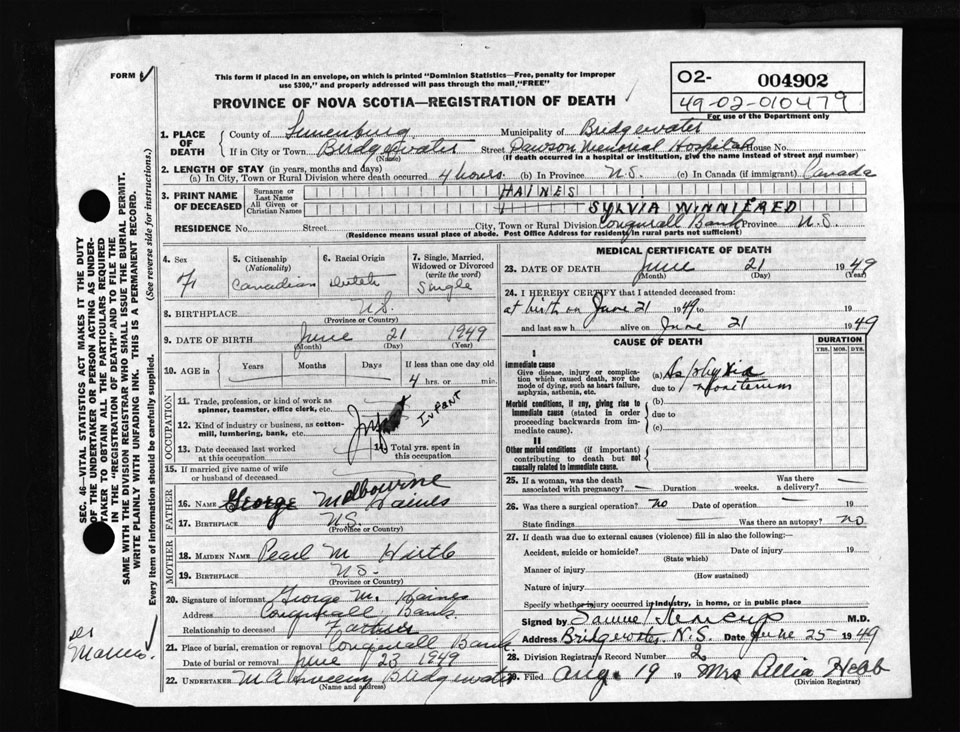 FORM V
This form if placed in an envelope, on which is printed "Dominion Statistics—Free, penalty for improper
use $300," and properly addressed will pass through the mail, "FREE"
PROVINCE OF NOVA SCOTIA—REGISTRATION OF DEATH
O2- 004902
49-02-010479
For use of the Department only
1. PLACE OF DEATH
County of Lunenburg Municipality of Bridgewater
If in City or Town Bridgewater Street Dawson Memorial Hospital House No.
(Name) (If death occurred in a hospital or institution, give the name instead of street and number)
2. LENGTH OF STAY (in years, months and days)
(a) In City, Town or Rural Division where death occurred 4 hours (b) In Province N.S. (c) In Canada (if immigrant) Canada
3. PRINT NAME OF DECEASED
Surname or Last Name HAINES
All Given or Christian Names SYLVIA WINNIERED
RESIDENCE No. Street City, Town or Rural Division Conquerall Bank Province N.S.
(Residence means usual place of abode. Post Office Address for residents in rural parts not sufficient)
4. Sex F
5. Citizenship (Nationality) Canadian
6. Racial Origin Dutch
7. Single, Married, Widowed or Divorced (write the word) Single
8. BIRTHPLACE N.S.
(Province or Country)
9. DATE OF BIRTH June 21 1949
(Month) (Day) (Year)
10. AGE in Years Months Days If less than one day old
4 hrs. or min.
OCCUPATION
11. Trade, profession, or kind of work as spinner, teamster, office clerk, etc.
12. Kind of industry or business, as cotton-mill, lumbering, bank, etc.
Infant INFANT
13. Date deceased last worked at this occupation
14. Total yrs. spent in this occupation.
15. If married give name of wife or husband of deceased
FATHER
16. NAME George Melbourne Haines
17. BIRTHPLACE N.S.
(Province or Country)
MOTHER
18. MAIDEN NAME Pearl M Hirtle
19. BIRTHPLACE N.S.
(Province or Country)
20. Signature of informant George M. Haines
Address Conquerall Bank
Relationship to deceased Father
21. Place of burial, cremation or removal Conquerall Bank
Date of burial or removal June 23 1949
22. UNDERTAKER Bridgewater
(Name and address)
MEDICAL CERTIFICATE OF DEATH
23. DATE OF DEATH June 21 1949
(Month) (Day) (Year)
24. I HEREBY CERTIFY that I attended deceased from:
at birth on June 21 1949 to 19
and last saw h alive on June 21 1949
CAUSE OF DEATH DURATION
YRS. MOS. DYS.
I
Immediate cause
Give disease, injury or complication which caused death, NOT the mode of dying, such as heart failure, asphyxia, asthenia, etc.
(a) Asphyxia
due to
Morbid conditions, if any, giving rise to immediate cause (stated in order proceeding backwards from immediate cause).
(b)
due to
(c)
II
Other morbid conditions (if important) contributing to death but not causally related to immediate cause.
25. If a woman, was the death associated with pregnancy? — Duration weeks. Was there a delivery? —
26. Was there a surgical operation? no Date of operation — 19
State findings — Was there an autopsy? no
27. If death was due to external causes (violence) fill in also the following:—
Accident, suicide or homicide? Date of injury 19
(State which)
Manner of injury
(How sustained)
Nature of injury
Specify whether injury occurred in industry, in home, or in public
Signed by Samuel M.D.
Address Bridgewater, N.S. Date June 25 1949
28. Division Registrar's Record Number 2
29. Filed Aug. 19 19 Mrs Hebb
(Division Registrar)
SEC. 46—VITAL STATISTICS ACT MAKES IT THE DUTY
OF THE UNDERTAKER OR PERSON ACTING AS UNDER-
TAKER TO OBTAIN ALL THE PARTICULARS REQUIRED
IN THE "REGISTRATION OF DEATH" AND TO FILE THE
SAME WITH THE DIVISION REGISTRAR WHO SHALL ISSUE THE BURIAL PERMIT.
WRITE PLAINLY WITH UNFADING INK. THIS IS A PERMANENT RECORD.
Every item of information should be carefully supplied. (See reverse side for instructions.)